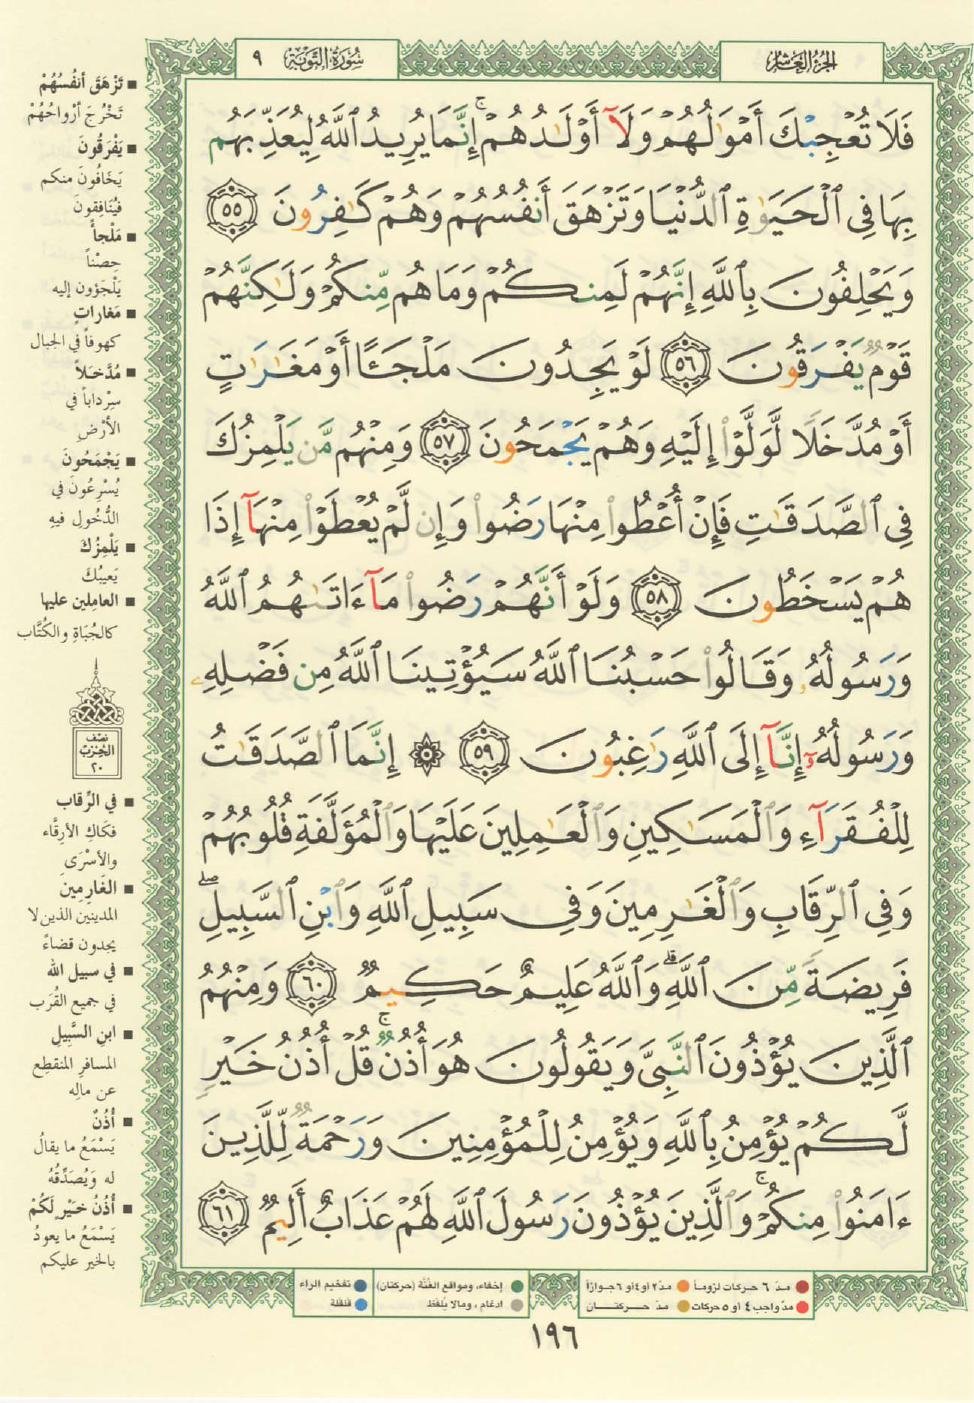 الجزء العاشر
سورة التوبة ٩
فَلَا تُعْجِبْكَ أَمْوَٰلُهُمْ وَلَآ أَوْلَـٰدُهُمْ ۚ إِنَّمَا يُرِيدُ ٱللَّهُ لِيُعَذِّبَهُم
بِهَا فِى ٱلْحَيَوٰةِ ٱلدُّنْيَا وَتَزْهَقَ أَنفُسُهُمْ وَهُمْ كَـٰفِرُونَ ٥٥
وَيَحْلِفُونَ بِٱللَّهِ إِنَّهُمْ لَمِنكُمْ وَمَا هُم مِّنكُمْ وَلَـٰكِنَّهُمْ
قَوْمٌ يَفْرَقُونَ ٥٦ لَوْ يَجِدُونَ مَلْجَـًٔا أَوْ مَغَـٰرَٰتٍ
أَوْ مُدَّخَلًا لَّوَلَّوْا۟ إِلَيْهِ وَهُمْ يَجْمَحُونَ ٥٧ وَمِنْهُم مَّن يَلْمِزُكَ
فِى ٱلصَّدَقَـٰتِ فَإِنْ أُعْطُوا۟ مِنْهَا رَضُوا۟ وَإِن لَّمْ يُعْطَوْا۟ مِنْهَآ إِذَا
هُمْ يَسْخَطُونَ ٥٨ وَلَوْ أَنَّهُمْ رَضُوا۟ مَآ ءَاتَىٰهُمُ ٱللَّهُ
وَرَسُولُهُۥ وَقَالُوا۟ حَسْبُنَا ٱللَّهُ سَيُؤْتِينَا ٱللَّهُ مِن فَضْلِهِۦ
وَرَسُولُهُۥٓ إِنَّآ إِلَى ٱللَّهِ رَٰغِبُونَ ٥٩ ۞ إِنَّمَا ٱلصَّدَقَـٰتُ
لِلْفُقَرَآءِ وَٱلْمَسَـٰكِينِ وَٱلْعَـٰمِلِينَ عَلَيْهَا وَٱلْمُؤَلَّفَةِ قُلُوبُهُمْ
وَفِى ٱلرِّقَابِ وَٱلْغَـٰرِمِينَ وَفِى سَبِيلِ ٱللَّهِ وَٱبْنِ ٱلسَّبِيلِ ۖ
فَرِيضَةً مِّنَ ٱللَّهِ ۗ وَٱللَّهُ عَلِيمٌ حَكِيمٌ ٦٠ وَمِنْهُمُ
ٱلَّذِينَ يُؤْذُونَ ٱلنَّبِىَّ وَيَقُولُونَ هُوَ أُذُنٌ ۚ قُلْ أُذُنُ خَيْرٍ
لَّكُمْ يُؤْمِنُ بِٱللَّهِ وَيُؤْمِنُ لِلْمُؤْمِنِينَ وَرَحْمَةٌ لِّلَّذِينَ
ءَامَنُوا۟ مِنكُمْ ۚ وَٱلَّذِينَ يُؤْذُونَ رَسُولَ ٱللَّهِ لَهُمْ عَذَابٌ أَلِيمٌ ٦١
■ تَزْهَقَ أنفُسُهُمْ
تَخْرُجَ أرْواحُهُمْ
■ يَفْرَقُونَ
يَخَافُونَ منكم
فيُنَافِقونَ
■ مَلْجأً
حِصْناً
يَلْجَؤون إليه
■ مَغاراتٍ
كهوفاً في الجبال
■ مُدَّخَلاً
سِرْداباً في
الأرْضِ
■ يَجْمَحُونَ
يُسْرِعُونَ في
الدُّخُولِ فيهِ
■ يَلْمِزُكَ
يَعيبُكَ
■ العامِلين عليها
كالجُبَاةِ والكُتَّاب
نصف
الحزب
٢٠
■ في الرِّقاب
فكَاكِ الأرِقَّاء
والأسْرَى
■ الغَارِمِينَ
المدينين الذين لا
يجدون قضاءً
■ في سبيل الله
في جميع القُرَب
■ ابن السَّبِيل
المسافر المنقطع
عن مالِه
■ أُذُنٌ
يَسْمَعُ ما يقالُ
له وَيُصَدِّقُهُ
■ أُذُنُ خَيْرٍ لَكُمْ
يَسْمَعُ ما يعودُ
بالخير عليكم
مدّ ٦ حركات لزوماً مدّ ٢ أو ٤ أو ٦ جوازاً
مدّ واجب ٤ أو ٥ حركات مدّ حركتان
إخفاء، ومواقع الغُنَّة (حركتان)
ادغام، ومالا يُلفَظ
تفخيم الراء
قلقلة
١٩٦